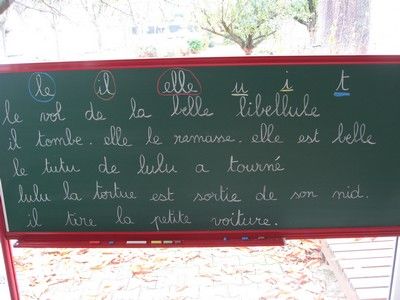 le il elle u i t
le vol de la belle libellule
il tombe. elle le ramasse. elle est belle
le tutu de lulu a tourné
lulu la tortue est sortie de son nid.
il tire la petite voiture.